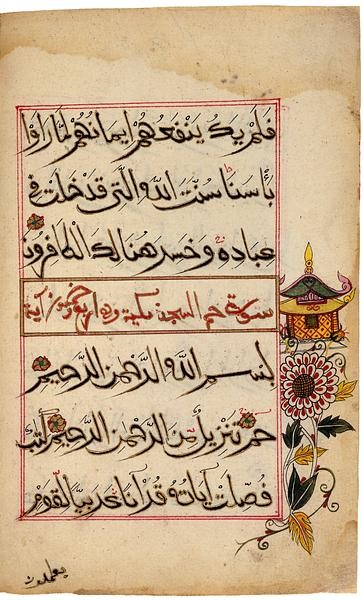 فلم يك ينفعهم ايمانهم لما راوا
بأسنا سنت الله التي قد خلت في
عباده وخسر هنالك الكافرون
سورة حم السجدة مكية وهي آية
بسم الله الرحمن الرحيم
حم تنزيل من الرحمن الرحيم كتاب
فصلت آياته قرآنا عربيا لقوم
يعلمون